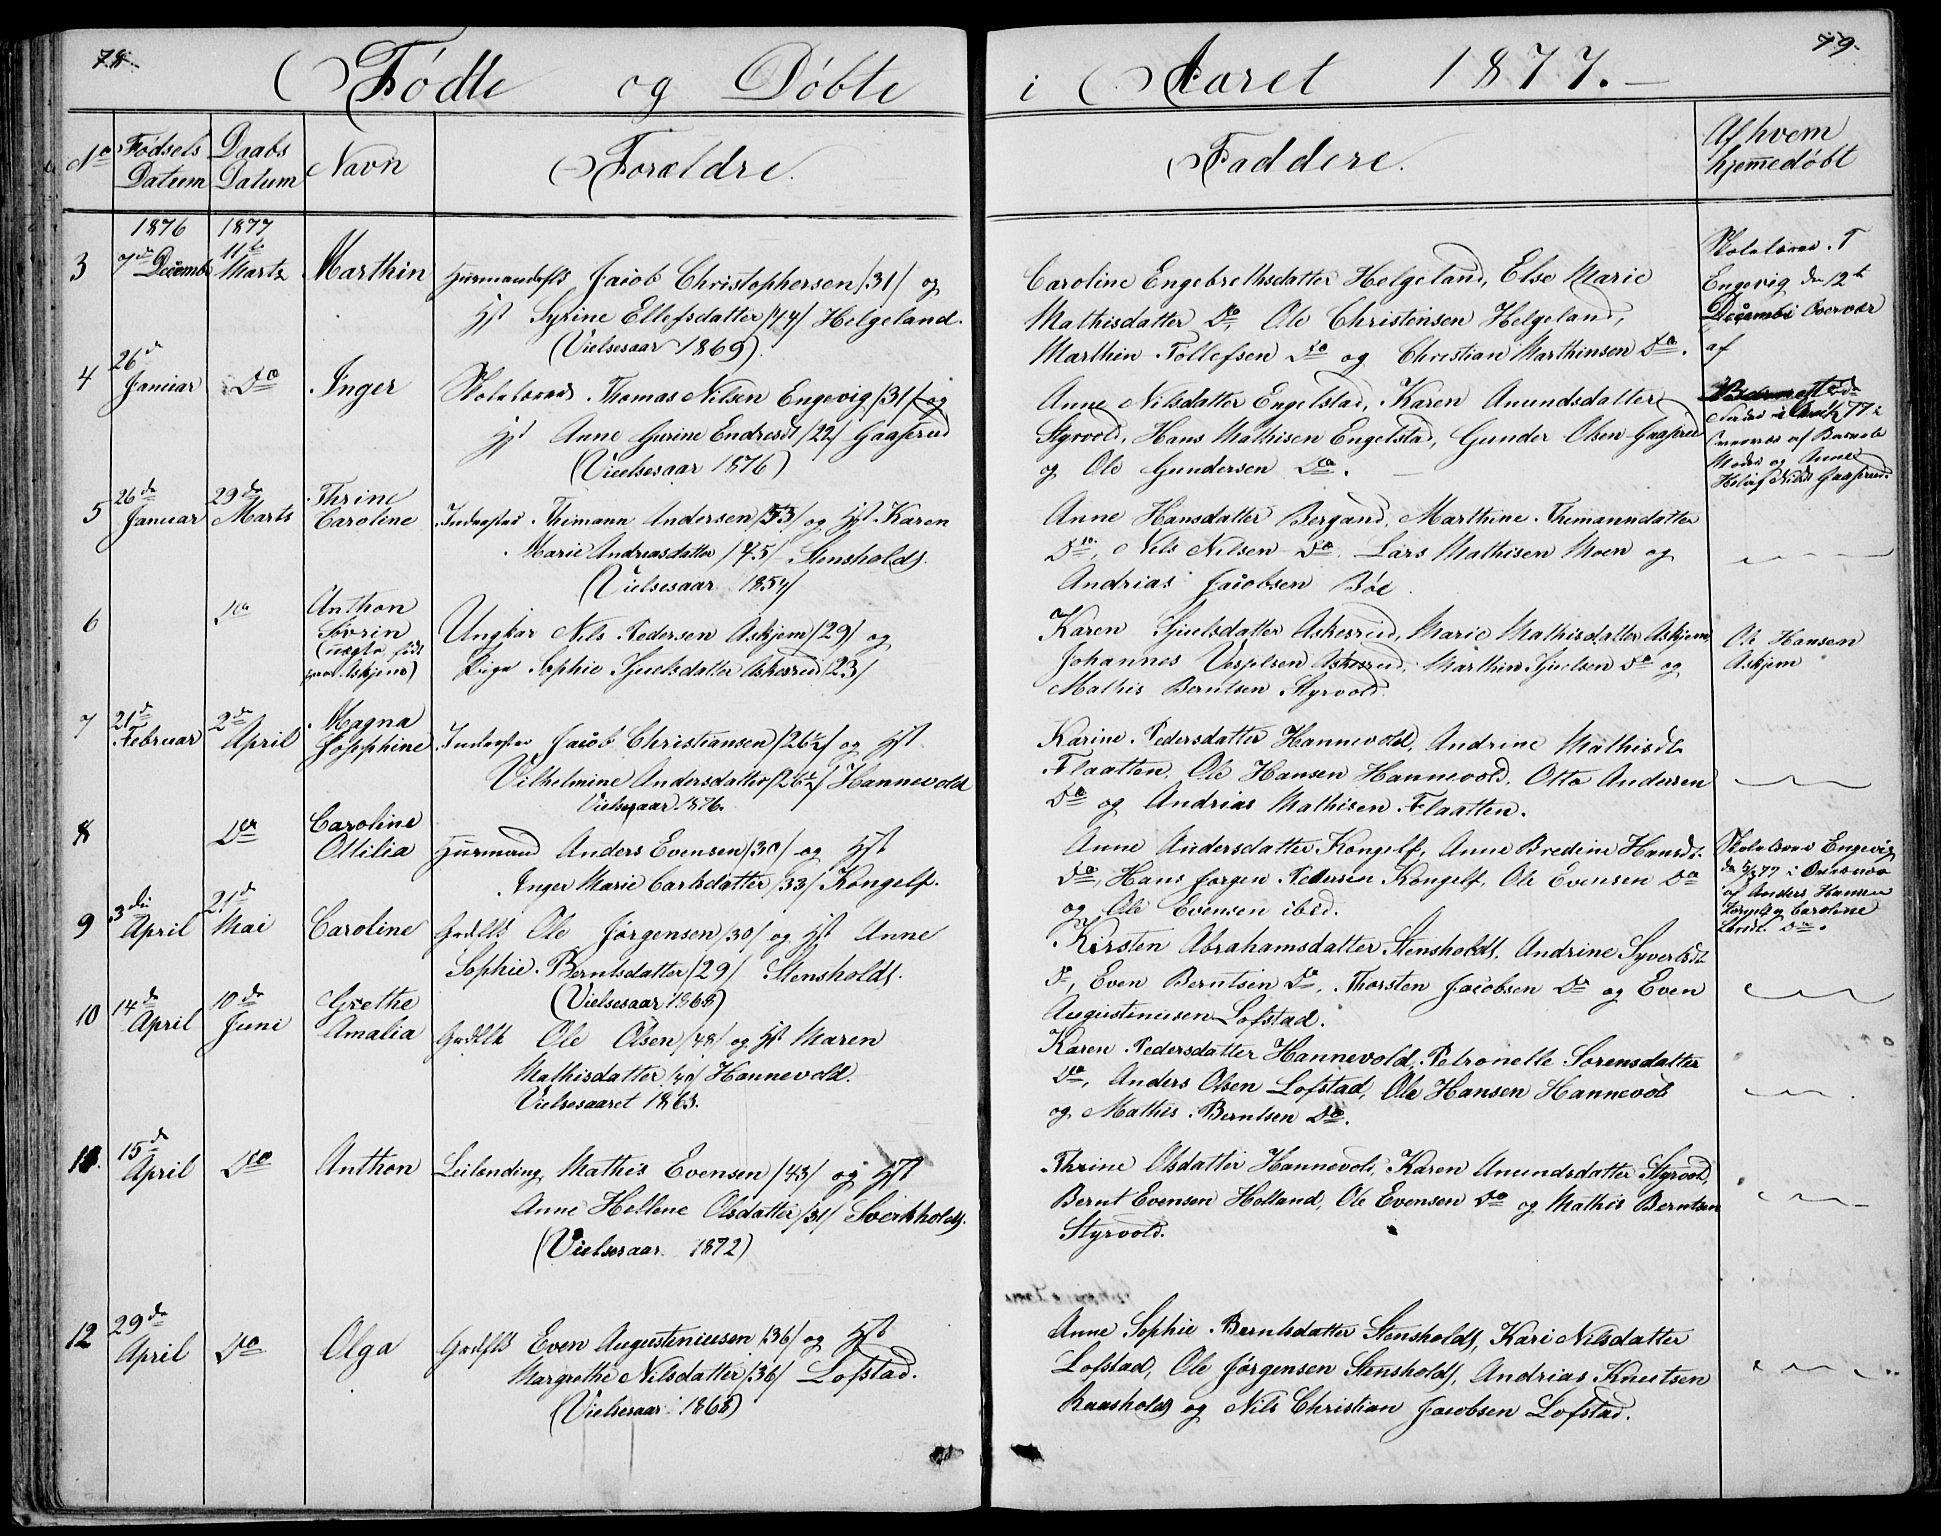 78.
Fødte og Døbte
No
Fødsels Datum
Daabs Datum
Navn
Forældre.
1876 1877
3 7de Decembr 11te Marts Marthin Huusmandsflk Jacob Christophersen /31/ og
Hst Syrine Ellefsdatter /44/ Helgeland.
(Vielsesaar 1869)
4 26de Januar Do Inger Skolelærer Thomas Nilsen Engevig /31/ og
Hst Anne Gurine Endresdt /22/ Gaaserud
(Vielsesaar 1876)
5 26de Januar 29de Marts Thrine Caroline Inderster Thimann Andersen /53/ og Hst Karen
Marie Andreasdatter /45/ Stensholdt.
(Vielsesaar 1854/
6 Do Anthon Søvrin
(uægte født paa Askjem)
Ungkar Nils Pedersen Askjem /29/ og
Pige Sophie Sjuelsdatter Askesrud /23/
7 21de Februar 2de April Magna Josphine Inderster Jacob Christiansen /26½/ og Hst
Vilhelmine Andersdatter /26½/ Hannevold
Vielsesaar 1876.
8 Do Caroline Ottilia Huusmand Anders Evensen /30/ og Hst
Inger Marie Carlsdatter /33/ Kongelf.
9 3die April 21de Mai Caroline Grdflk Ole Jørgensen /30/ og Hst Anne
Sophie Berntsdatter /29/ Stensholdt.
(Vielsesaar 1868)
10 14de April 10de Juni Grethe Amalia Grdflk Ole Olsen /48/ og Hst Maren
Mathisdatter /40/ Hannevold.
Vielsesaaret 1863.
11. 15de April Do Anthon Leilending Mathis Evensen /43/ og Hst
Anne Hellene Olsdatter /31/ Sverkholdt.
(Vielsesaar 1872)
12 29de April Do Olga Grdflk Even Augustiniusen /36/ og Hst
Margrethe Nilsdatter /36/ Lofstad.
(Vielsesaar 1868)
79.
i Aaret 1877.
Faddere.
Af hvem hjemmedøbt
Caroline Engebrethsdatter Helgeland, Else Marie
Mathisdatter Do, Ole Christensen Helgeland,
Marthin Tollefsen Do og Christian Marthinsen Do.
Skolelærer T
Engevig den 12te
Decembr Overvær
af
Anne Nilsdatter Engelstad, Karen Anundsdatter
Styrvold, Hans Mathisen Engelstad, Gunder Olsen Gaaserud
og Ole Gundersen Do.
Overvær af Barnets
Moder og Anne
Gaaserud.
Anne Hansdatter Bergand, Marthine Themanndatter
Do, Nils Nilsen Do Lars Mathisen Moen og
Andrias Jacobsen Bøe.
Karen Sjuelsdatter Askesrud, Marie Mathisdatter Askjem
Johannes Vespelsen Askesrud, Marthin Sjuelsen Do og
Mathis Berntsen Styrvold.
Ole Hansen
Askjem
Karine Pedersdatter Hannevold, Andrine Mathisdt
Flaatten, Ole Hansen Hannevold, Otto Andersen
Do og Andrias Mathisen Flaatten.
Anne Andersdatter Kongelf, Anne Bredine Hansdt.
Do, Hans Jørgen Pedersen Kongelf, Ole Evensen Do
og Ole Evensen ibid.
Skolelærer Engevig
af Anders Hansen
og Caroline
Do.
Kirsten Abrahamsdatter Stensholdt, Andrine Syvertsdt
Do, Even Berntsen Do, Thorsten Jacobsen Do og Even
Augustiniusen Lofstad.
Karen Pedersdatter Hannevold, Petronelle Sørensdatter
Do, Anders Olsen Lofstad, Ole Hansen Hannevold
og Mathis Berntsen Do.
Thrine Olsdatter Hannevold, Karen Anundsdatter Styrvold,
Bernt Evensen Holland, Ole Evensen Do og Mathis Berntsen
Styrvold.
Anne Sophie Berntsdatter Stensholdt, Kari Nilsdatter
Lofstad, Ole Jørgensen Stensholdt, Andrias Knutsen
Raasholdt og Nils Christian Jacobsen Lofstad.